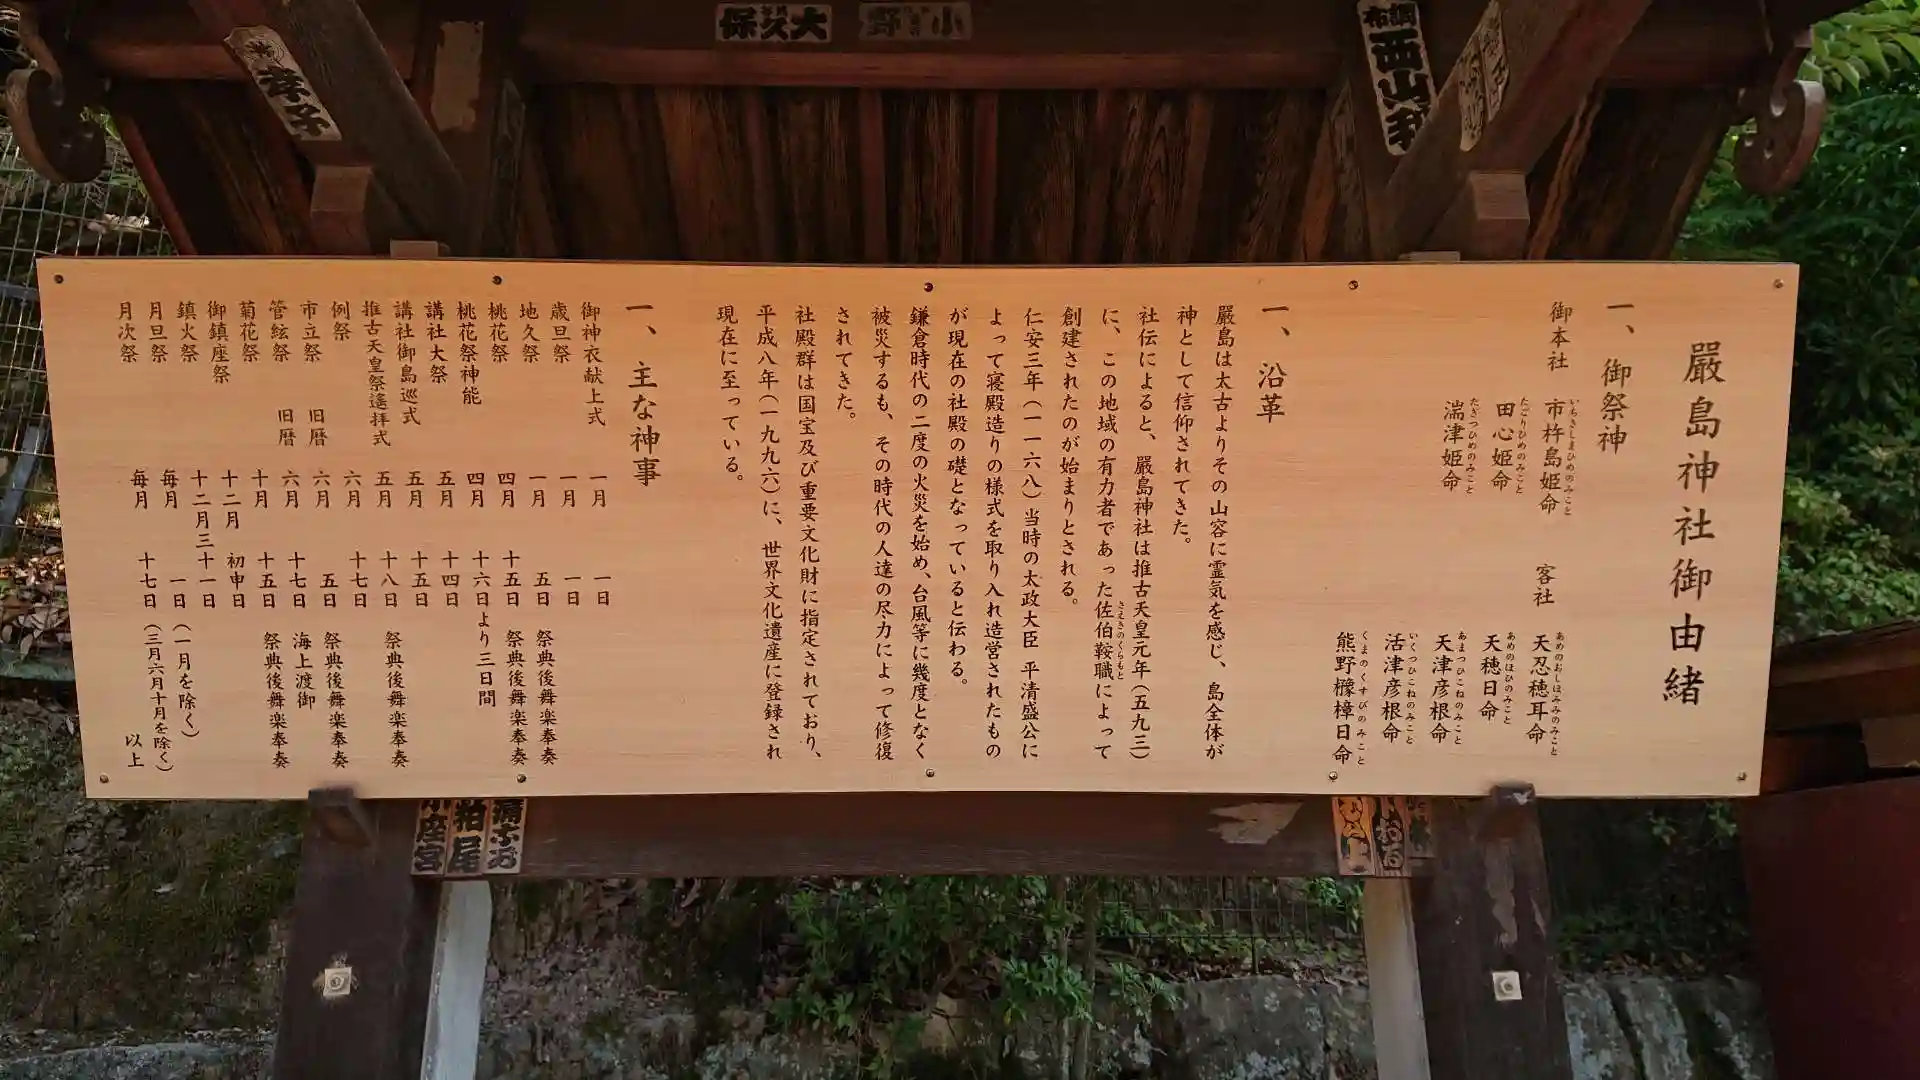 嚴島神社御由緒
一、御祭神
御本社
市杵島姫命
いちきしまひめのみこと
田心姫命
たごりひめのみこと
湍津姫命
たぎつひめのみこと
客社
天忍穂耳命
あめのおしほみみのみこと
天穂日命
あめのほひのみこと
天津彦根命
あまつひこねのみこと
活津彦根命
いくつひこねのみこと
熊野櫲樟日命
くまのくすびのみこと
一、沿革
嚴島は太古よりその山容に霊気を感じ、島全体が
神として信仰されてきた。
社伝によると、嚴島神社は推古天皇元年（五九三）
に、この地域の有力者であった佐伯鞍職によって
さえきのくらもと
創建されたのが始まりとされる。
仁安三年（一一六八）当時の太政大臣 平清盛公に
よって寝殿造りの様式を取り入れ造営されたもの
が現在の社殿の礎となっていると伝わる。
鎌倉時代の二度の火災を始め、台風等に幾度となく
被災するも、その時代の人達の尽力によって修復
されてきた。
社殿群は国宝及び重要文化財に指定されており、
平成八年（一九九六）に、世界文化遺産に登録され
現在に至っている。
一、主な神事
御神衣献上式 一月 一日
歳旦祭 一月 一日
地久祭 一月 五日 祭典後舞楽奉奏
桃花祭 四月 十五日 祭典後舞楽奉奏
桃花祭神能 四月 十六日より三日間
講社大祭 五月 十四日
講社御島巡式 五月 十五日
推古天皇祭遙拝式 五月 十八日 祭典後舞楽奉奏
例祭 六月 十七日
市立祭 旧暦 六月 五日 祭典後舞楽奉奏
管絃祭 旧暦 六月 十七日 海上渡御
菊花祭 十月 十五日 祭典後舞楽奉奏
御鎮座祭 十二月 初申日
鎮火祭 十二月三十一日
月旦祭 毎月 一日（一月を除く）
月次祭 毎月 十七日（三月六月十月を除く）
以上
大久保
小野
孝子
粕尾